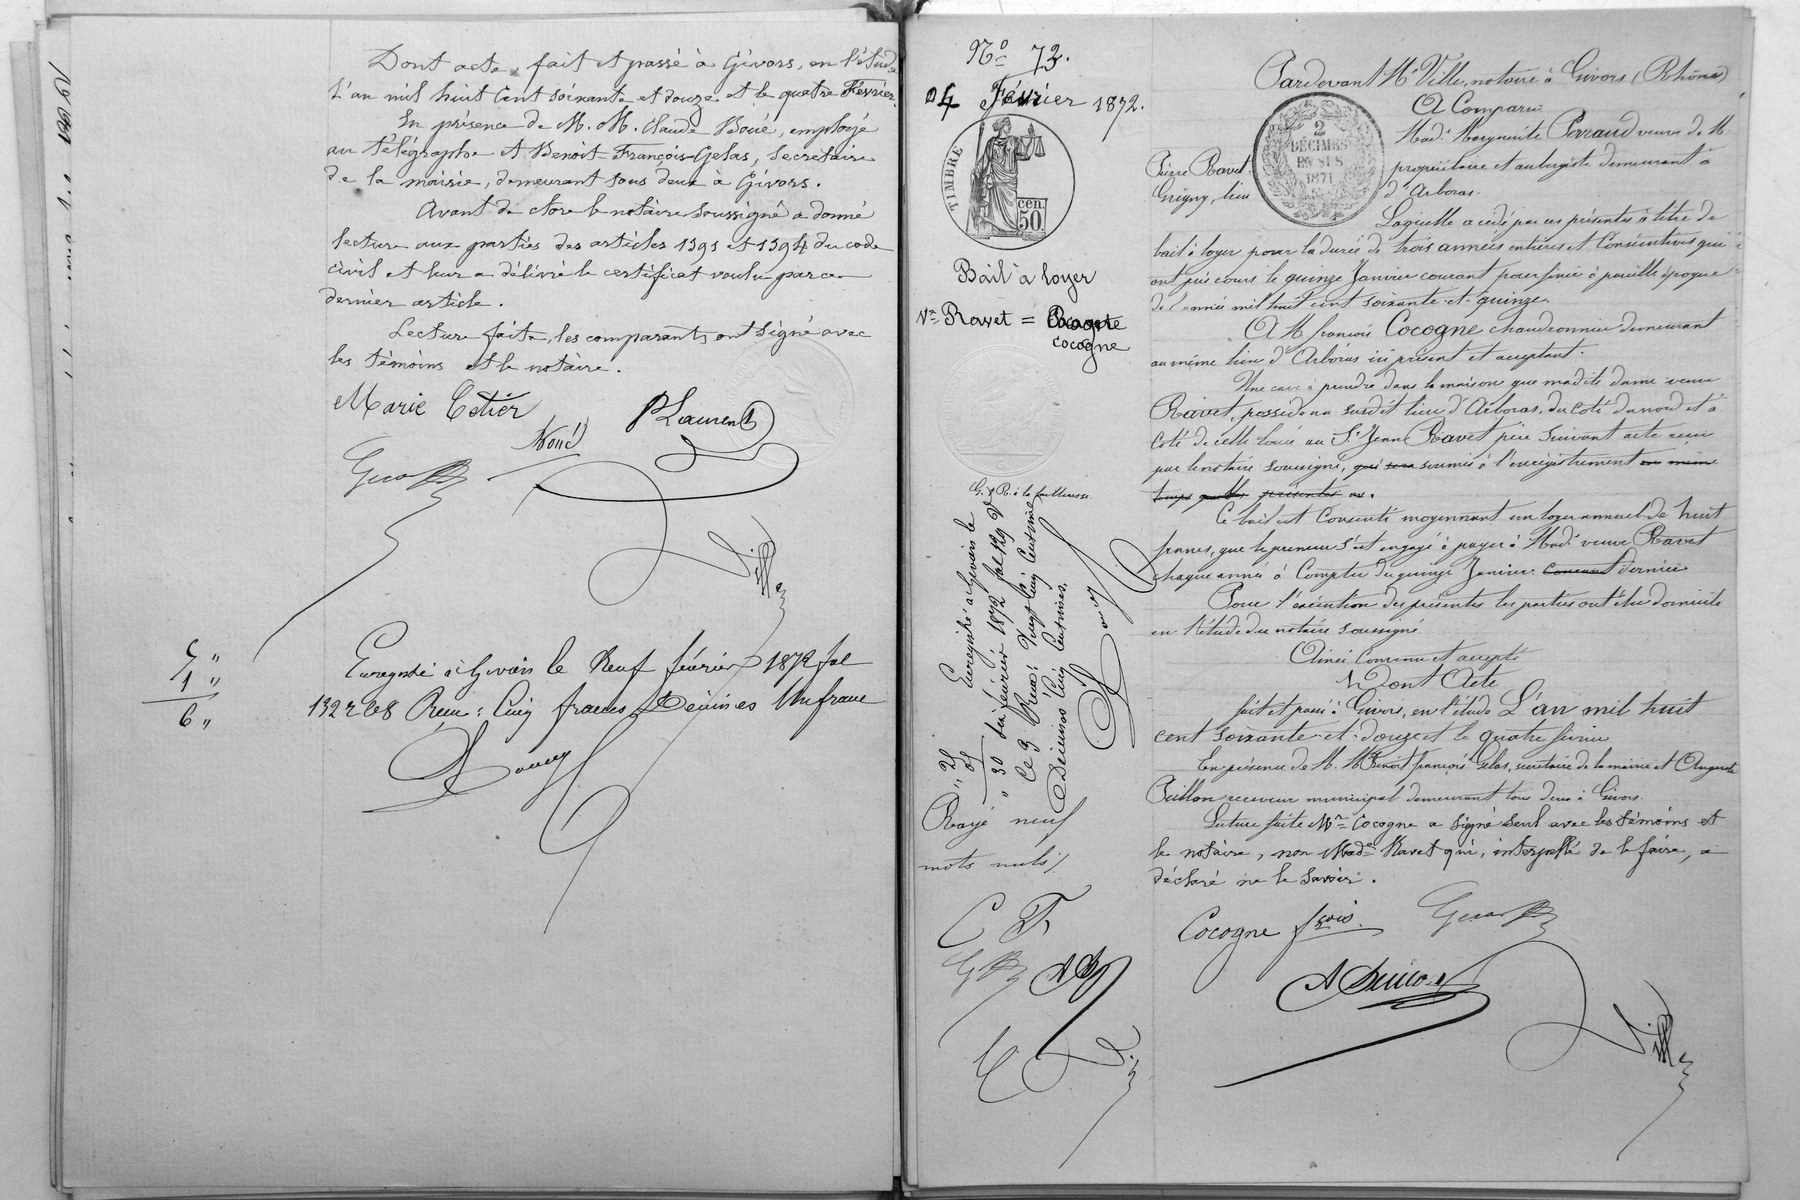 Dont acte, fait et passé à Givors, en l'étude
L'an mil huit cent soixante et douze et le quatre Février
En présence de M. M. Claude Boué, employé
au télégraphe et Benoit François Gelas, Secrétaire
de la mairie, demeurant tous deux à Givors.
Avant de clore le notaire soussigné a donné
lecture aux parties des articles 1391 et 1394 du code
civil et leur a délivré le certificat voulu par ce
dernier article.
Lecture faite, les comparants ont signé avec
les témoins et le notaire.
Marie Tetier
Boué
P Laurent
Ville
5 "
1 "
6 "
Enregistré à Givors le Neuf février 1872 fol
132 Reçu: Cinq francs Décimes Un franc
No 72.
04 Février 1872.
TIMBRE
50 cen
Bail à loyer
Ve Ravet =
Cocogne
Enregistré à Givors le
1872 fol 129
Reçu: Vingt Cinq Centimes
Décimes Cinq Centimes.
Rayé neuf
mots nuls
C F
Pardevant Me Ville, notaire à Givors (Rhône)
A Comparu
2
DÉCIMES
EN SUS
1871
Made Marguerite Perraud veuve de M.
Pierre Ravet propriétaire et aubergiste demeurant à
Grigny, lieu d'Arboras.
Laquelle a cédé par ces présentes à titre de
bail à loyer pour la durée de trois années entières et Consécutives qui
ont pris cours le quinze Janvier courant pour finir à pareille époque
de l'année mil huit cent soixante-et-quinze.
A M. françois Cocogne chaudronnier demeurant
au même lieu d'Arboras ici présent et acceptant.
Une cave à prendre dans la maison que madite dame veuve
Ravet, possède au susdit lieu d'Arboras, du Coté du nord et à
Coté de celle louée au Sr Jean Ravet père suivant acte reçu
par le notaire soussigné, qui sera soumis à l'enregistrement en même
temps que les présentes
Ce bail est Consenti moyennant un loyer annuel de huit
francs, que le preneur s'est engagé à payer à Made veuve Ravet
chaque année à Compter du quinze Janvier Courant dernier
Pour l'exécution des présentes les parties ont élu domicile
en l'étude du notaire soussigné
Ainsi Convenu et accepté
Dont Acte
fait et passé à Givors, en l'étude L'an mil huit
cent soixante-et-douze et le quatre février
En présence de M. M. Benoit françois Gelas, secrétaire de la mairie et Auguste
receveur municipal demeurant tous deux à Givors.
Lecture faite Mr Cocogne a signé seul avec les témoins et
le notaire, non Made Ravet qui, interpellé de le faire, a
déclaré ne le savoir.
Cocogne frçois
Ville